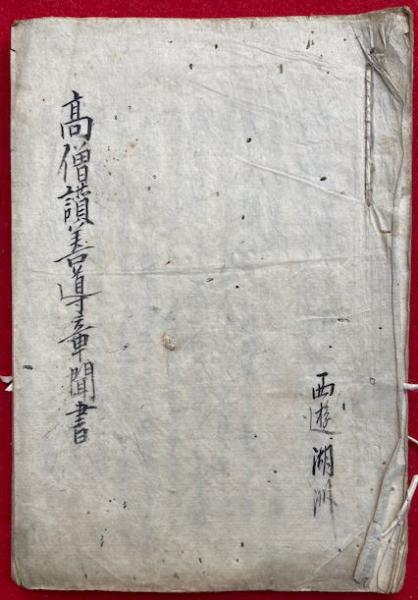 高僧讃善導章聞書
西遊湖